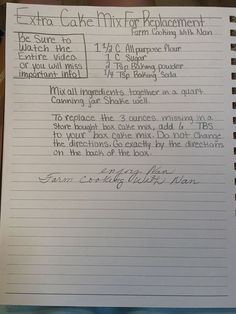 Extra Cake Mix For Replacement
Farm Cooking With Nan
Be Sure to
Watch the
Entire video
or you will miss
important info!
1 1/2 C All purpose Flour
1 C Sugar
2 Tsp Baking powder
1/4 Tsp Baking Soda
Mix all ingredients together in a quart
Canning jar Shake well.
To replace the 3 ounces missing in a
Store bought box cake mix, add 6 TBS
to your box cake mix. Do not Change
the directions. Go exactly by the directions
on the back of the box.
enjoy Nan
Farm Cooking With Nan